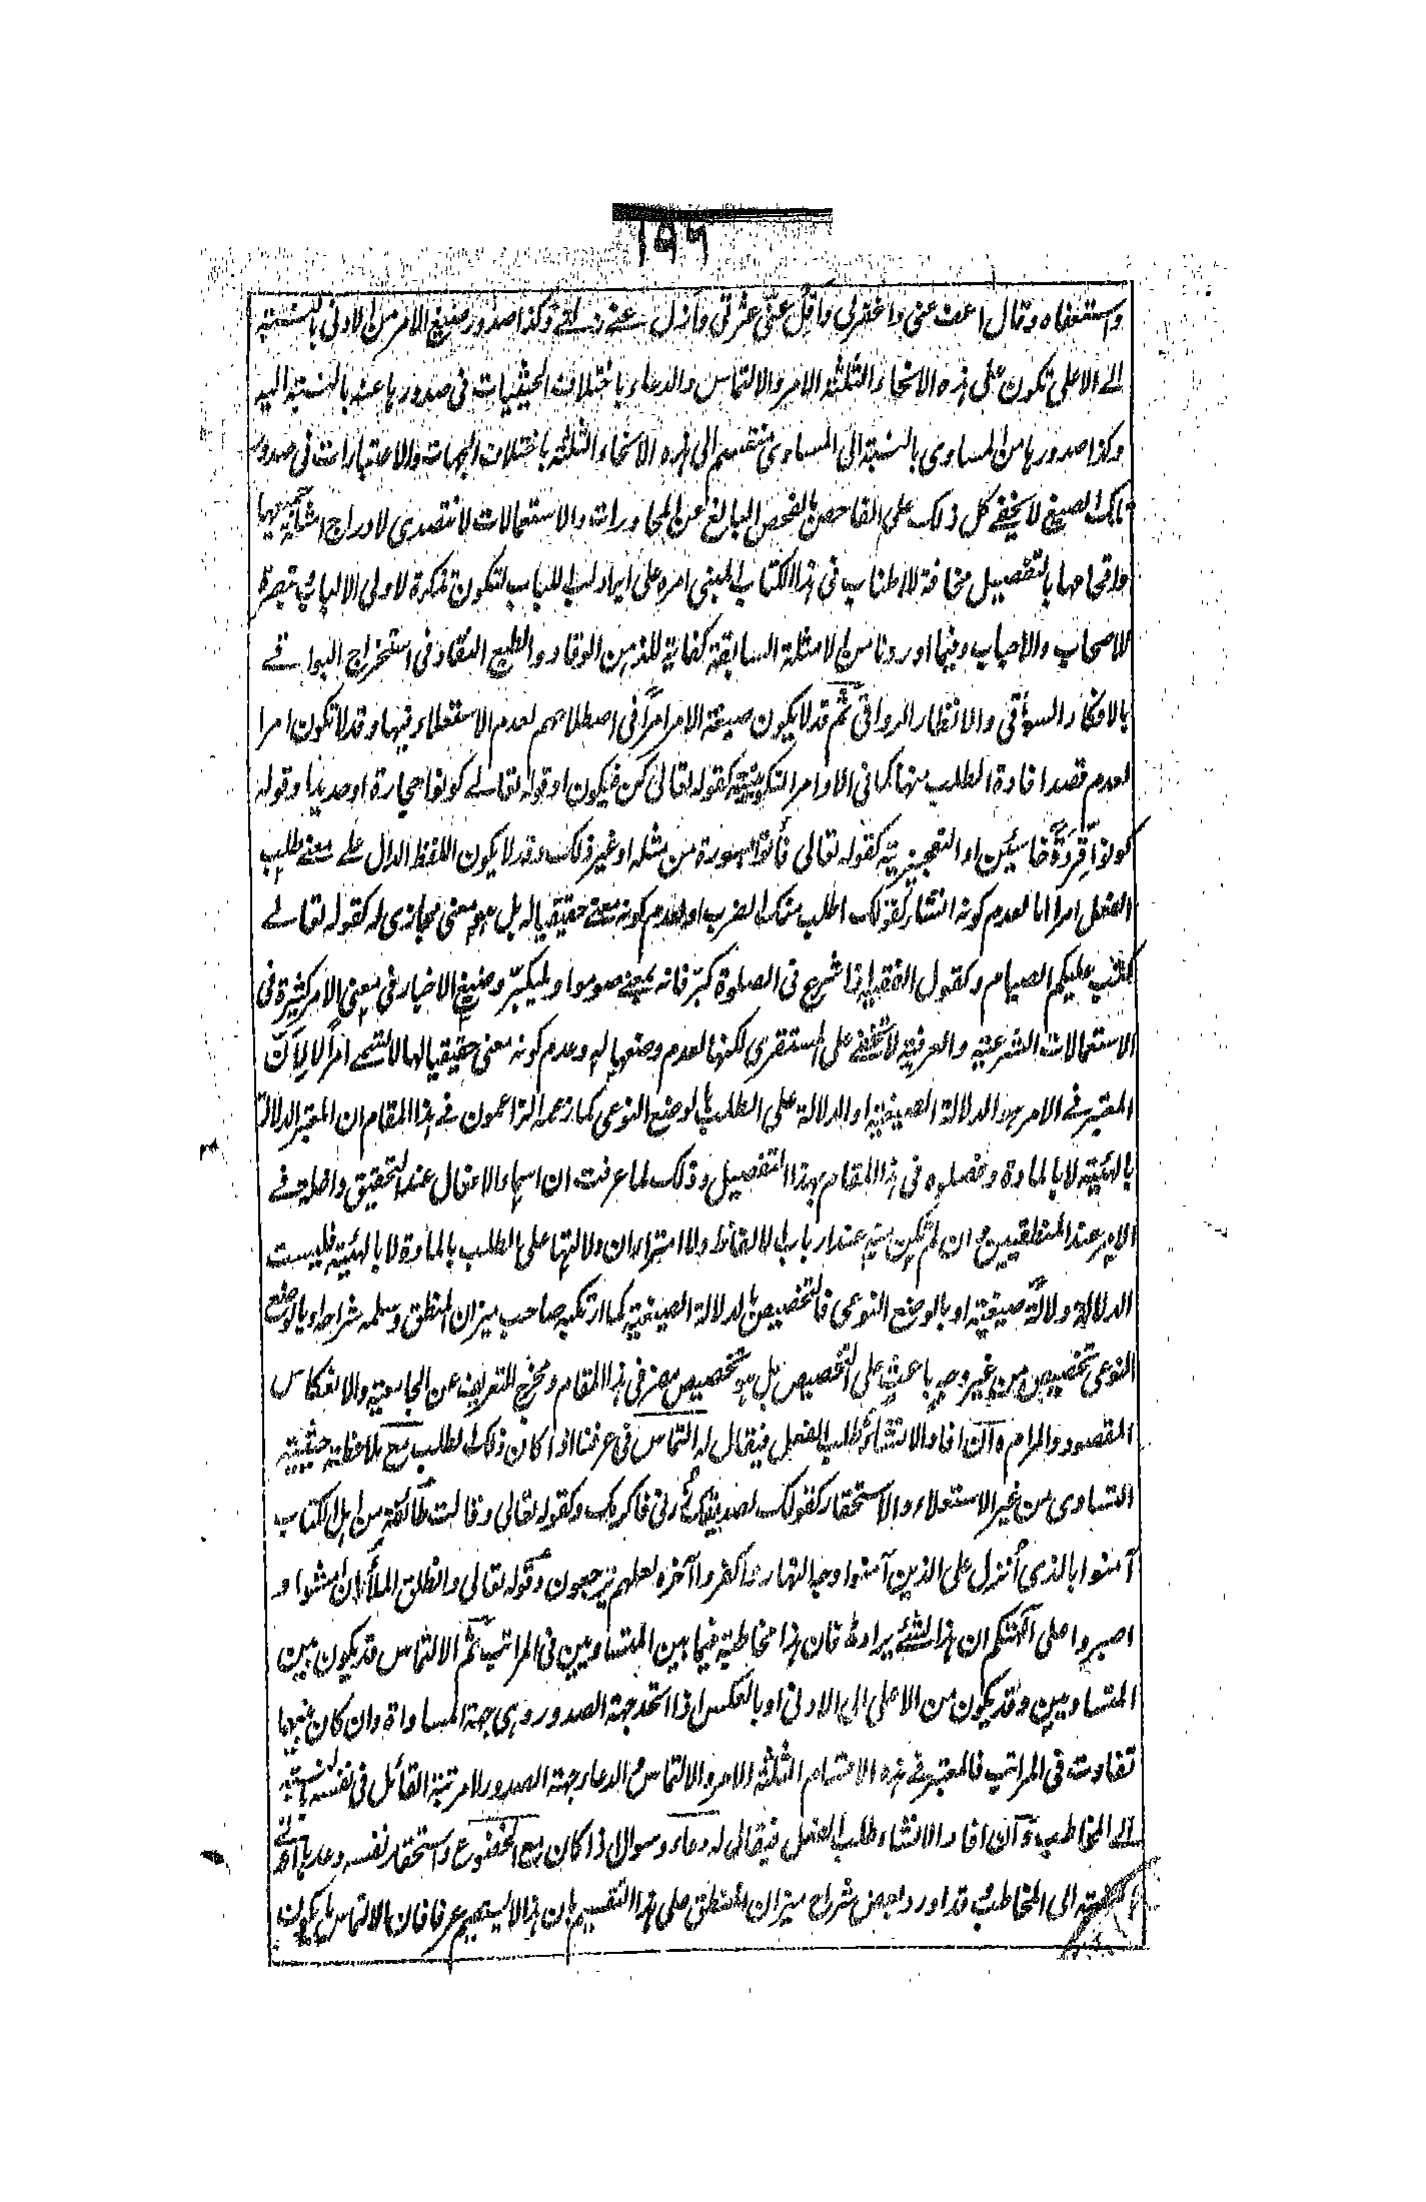 ۱۵۶
واستعفاه وقال اعف عنى واغفرلى وأقِل عنّى عثرتى وأزل عنى زلتى وكذا صدور صيغ الامر من الادنى بالنسبة
الى الاعلى تكون على هذه الانحاء الثلثة الامر والالتماس والدعاء باختلاف الحيثيات فى صدورها عنه بالنسبة اليه
وكذا صدورها من المساوى بالنسبة الى المساوى منقسم الى هذه الانحاء الثلثة باختلاف الجهات والاعتبارات فى صدور
تلك الصيغ لا يخفى كل ذلك على الفاحص بالفحص البالغ عن المحاورات والاستعمالات لا نتصدى لادراج امثلة جميعها
واقحامها بالتفصيل مخافة الاطناب فى هذا الكتاب المبنى امره على ايراد لب اللباب لتكون تذكرة لاولى الالباب وتبصرة
للاصحاب والاحباب وفيما اوردنا من الامثلة السابقة كفاية للذهن الوقاد والطبع النقاد فى استخراج البواقى
بالافكار السواقى والانظار الرواقى ثم قد لا يكون صيغة الامر امرا فى اصطلاحهم لعدم الاستعلاء فيها وقد لا تكون امرا
لعدم قصد افادة الطلب منها كما فى الاوامر التكوينية كقوله تعالى كن فيكون او قوله تعالى كونوا حجارة او حديدا وقوله
كونوا قِرَدَةً خاسئين او التعجيزية كقوله تعالى فأتوا بسورة من مثله او غير ذلك وقد لا يكون اللفظ الدال على معنى طلب
الفعل امرا اما لعدم كونه انشاء كقولك اطلب منك الضرب او لعدم كونه معنى حقيقيا له بل هو معنى مجازى له كقوله تعالى
كتب عليكم الصيام وكقول الفقيه اذا شرع فى الصلوة كبّر فانه بمعنى صوموا وليكبّر وصيغ الاخبار فى معنى الامر كثيرة فى
الاستعمالات الشرعية والعرفية لا تخفى على المستقرى لكنها لعدم وضعها له وعدم كونه معنى حقيقيا لها لا تسمى امرًا لا لأنّ
المعتبر فى الامر هو الدلالة الصيغية او الدلالة على الطلب بالوضع النوعى كما زعمه الزاعمون فى هذا المقام ان المعتبر الدلالة
بالهيئة لا بالمادة وفصلوه فى هذا المقام بهذا التفصيل وذلك لما عرفت ان اسماء الافعال عند التحقيق داخلة فى
الامر عند المنطقيين وان لم تكن منه عند ارباب الالفاظ ولا امتراء ان دلالتها على الطلب بالمادة لا بالهيئة فليست
الدلالة دلالة صيغية او بالوضع النوعى فالتخصيص بالدلالة الصيغية كما ارتكبه صاحب ميزان المنطق وسلمه شراحه او بالوضع
النوعى تخصيص من غير وجه باعث على التخصيص بل هو تخصيص مضر فى هذا المقام ومخرج للتعريف عن الجامعية والانعكاس
المقصود والمرام وان افاد الانشاء طلب الفعل فيقال له التماس فى عرفنا اذا كان ذلك الطلب مع ملاحظة حيثية
التساوى من غير الاستعلاء والاستحقار كقولك لصديقك زرنى فاكرمك وكقوله تعالى وقالت طائفة من اهل الكتاب
آمنوا بالذى أنزل على الذين آمنوا وجه النهار واكفروا آخره لعلهم يرجعون وكقوله تعالى وانطلق الملأ ان امشوا و
اصبروا على آلهتكم ان هذا لشئ يراد فان هذا مخاطبة فيما بين المتساويين فى المراتب ثم الالتماس قد يكون بين
المتساويين وقد يكون من الاعلى الى الادنى او بالعكس اذا اتحد جهة الصدور وهى جهة المساواة وان كان بينهما
تفاوت فى المراتب فالمعتبر فى هذه الاقسام الثلثة الامر والالتماس والدعاء جهة الصدور لا مرتبة القائل فى نفسه بالنسبة
الى المخاطب وان افاد الانشاء طلب الفعل فيقال له دعاء وسوال اذا كان مع الخضوع واستحقار نفسه وعدها ادنى
بالنسبة الى المخاطب قد اورد بعض شراح ميزان المنطق على هذا التقسيم بان هذا لا يستقيم عرفا فان الالتماس ما يكون